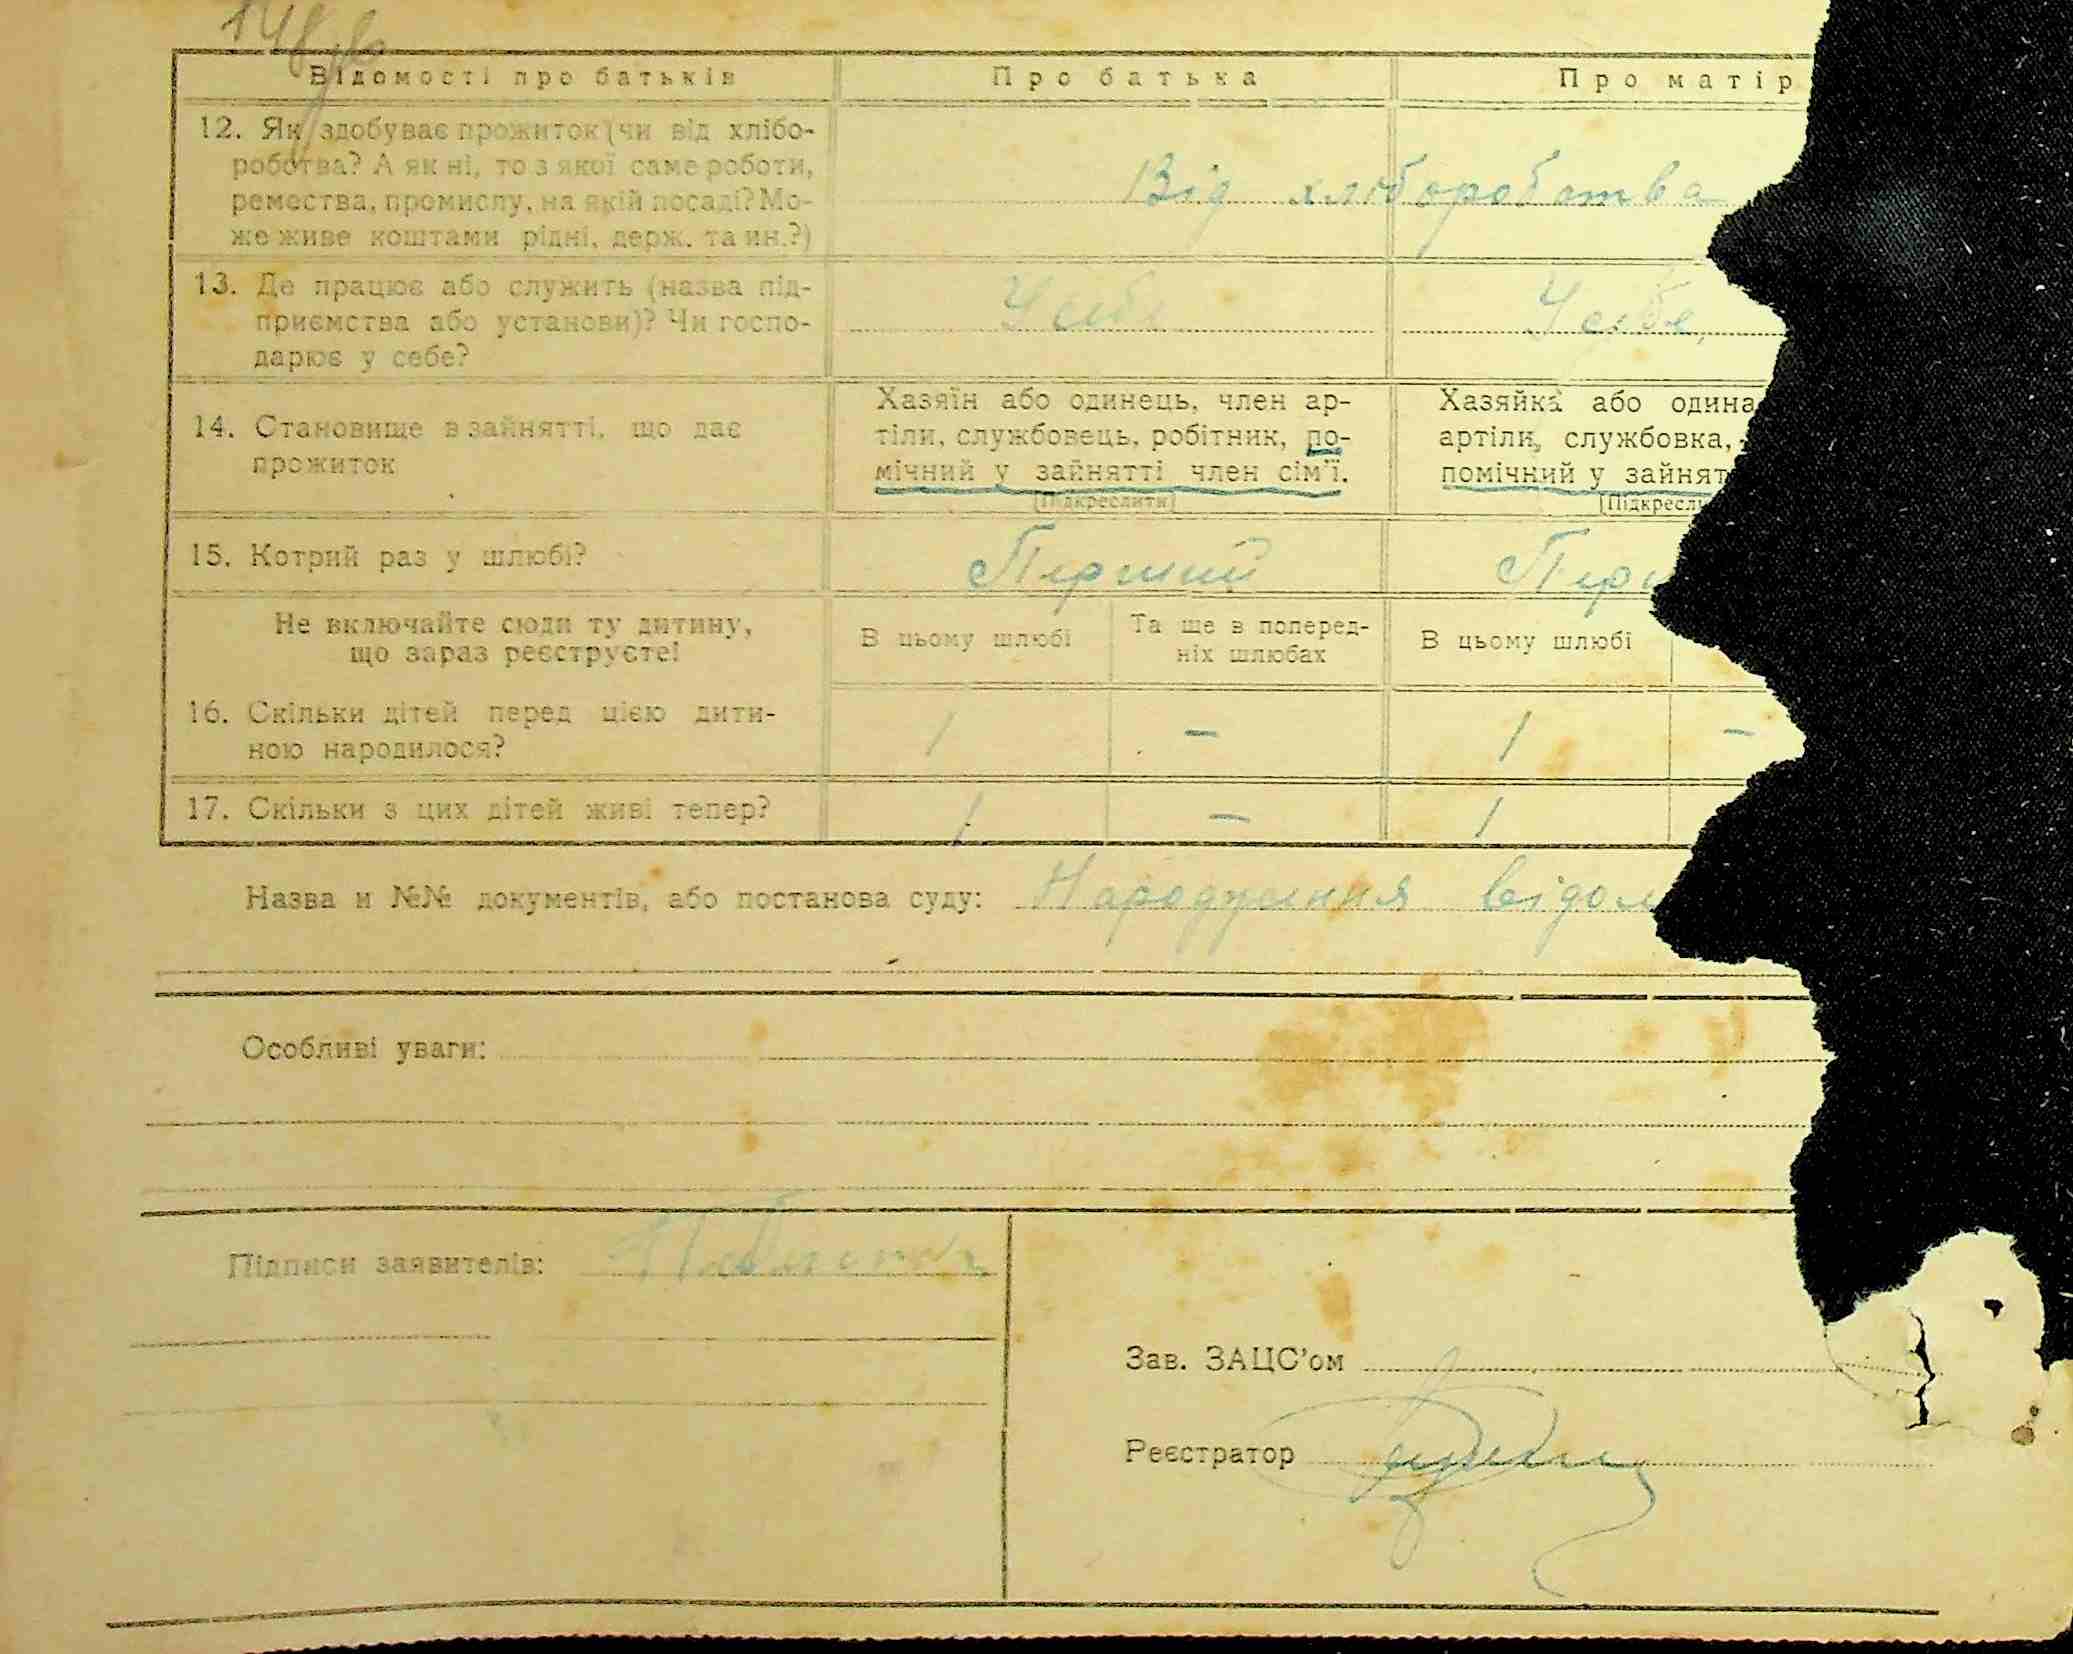 Відомості про батьків Про батька Про матір
12. Як здобуває прожиток (чи від хлібо-
робства? А як ні, то з якої саме роботи,
ремества, промислу, на якій посаді? Мо-
же живе коштами рідні, держ. та ин.?)
Від хліборобства
13. Де працює або служить (назва під-
приємства або установи)? Чи госпо-
дарює у себе?
У себе У себе,
14. Становище в зайнятті, що дає
прожиток
Хазяїн або одинець, член ар-
тіли, службовець, робітник, по-
мічний у зайнятті член сім'ї.
(Підкреслити)
Хазяйка або одина
артіли, службовка,
помічний у зайнят
(Підкресли
15. Котрий раз у шлюбі? Перший Пер
Не включайте сюди ту дитину,
що зараз реєструєте!
В цьому шлюбі Та ще в поперед-
ніх шлюбах
В цьому шлюбі
16. Скільки дітей перед цією дити-
ною народилося?
1 – 1 –
17. Скільки з цих дітей живі тепер? 1 – 1
Назва и №№ документів, або постанова суду: Народження відом
Особливі уваги:
Підписи заявителів:
Зав. ЗАЦС'ом
Реєстратор